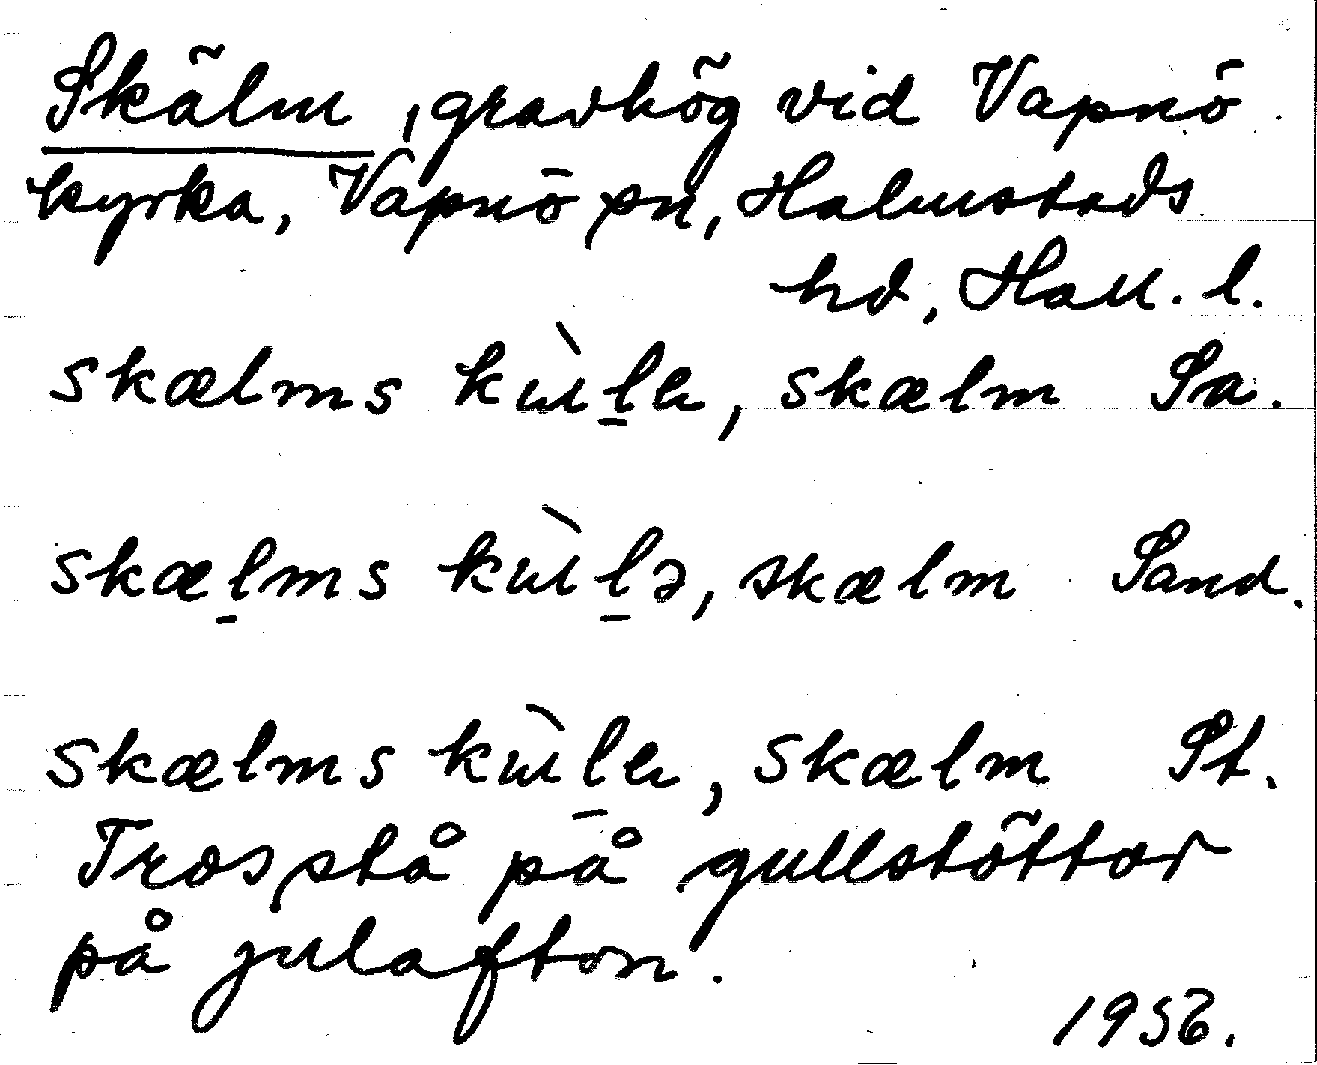 Skälm, gravhög vid Vapnö
kyrka, Vapnö sn, Halmstads
hd, Hall. l.
skælms kɯ̀l̠ɐ, skælm Sa.
skæl̠ms kɯ̀l̠ə, skælm Sand.
skælms kɯ̀l̠ɐ, skælm St.
Tros stå på gullstöttor
på julafton.
1956.